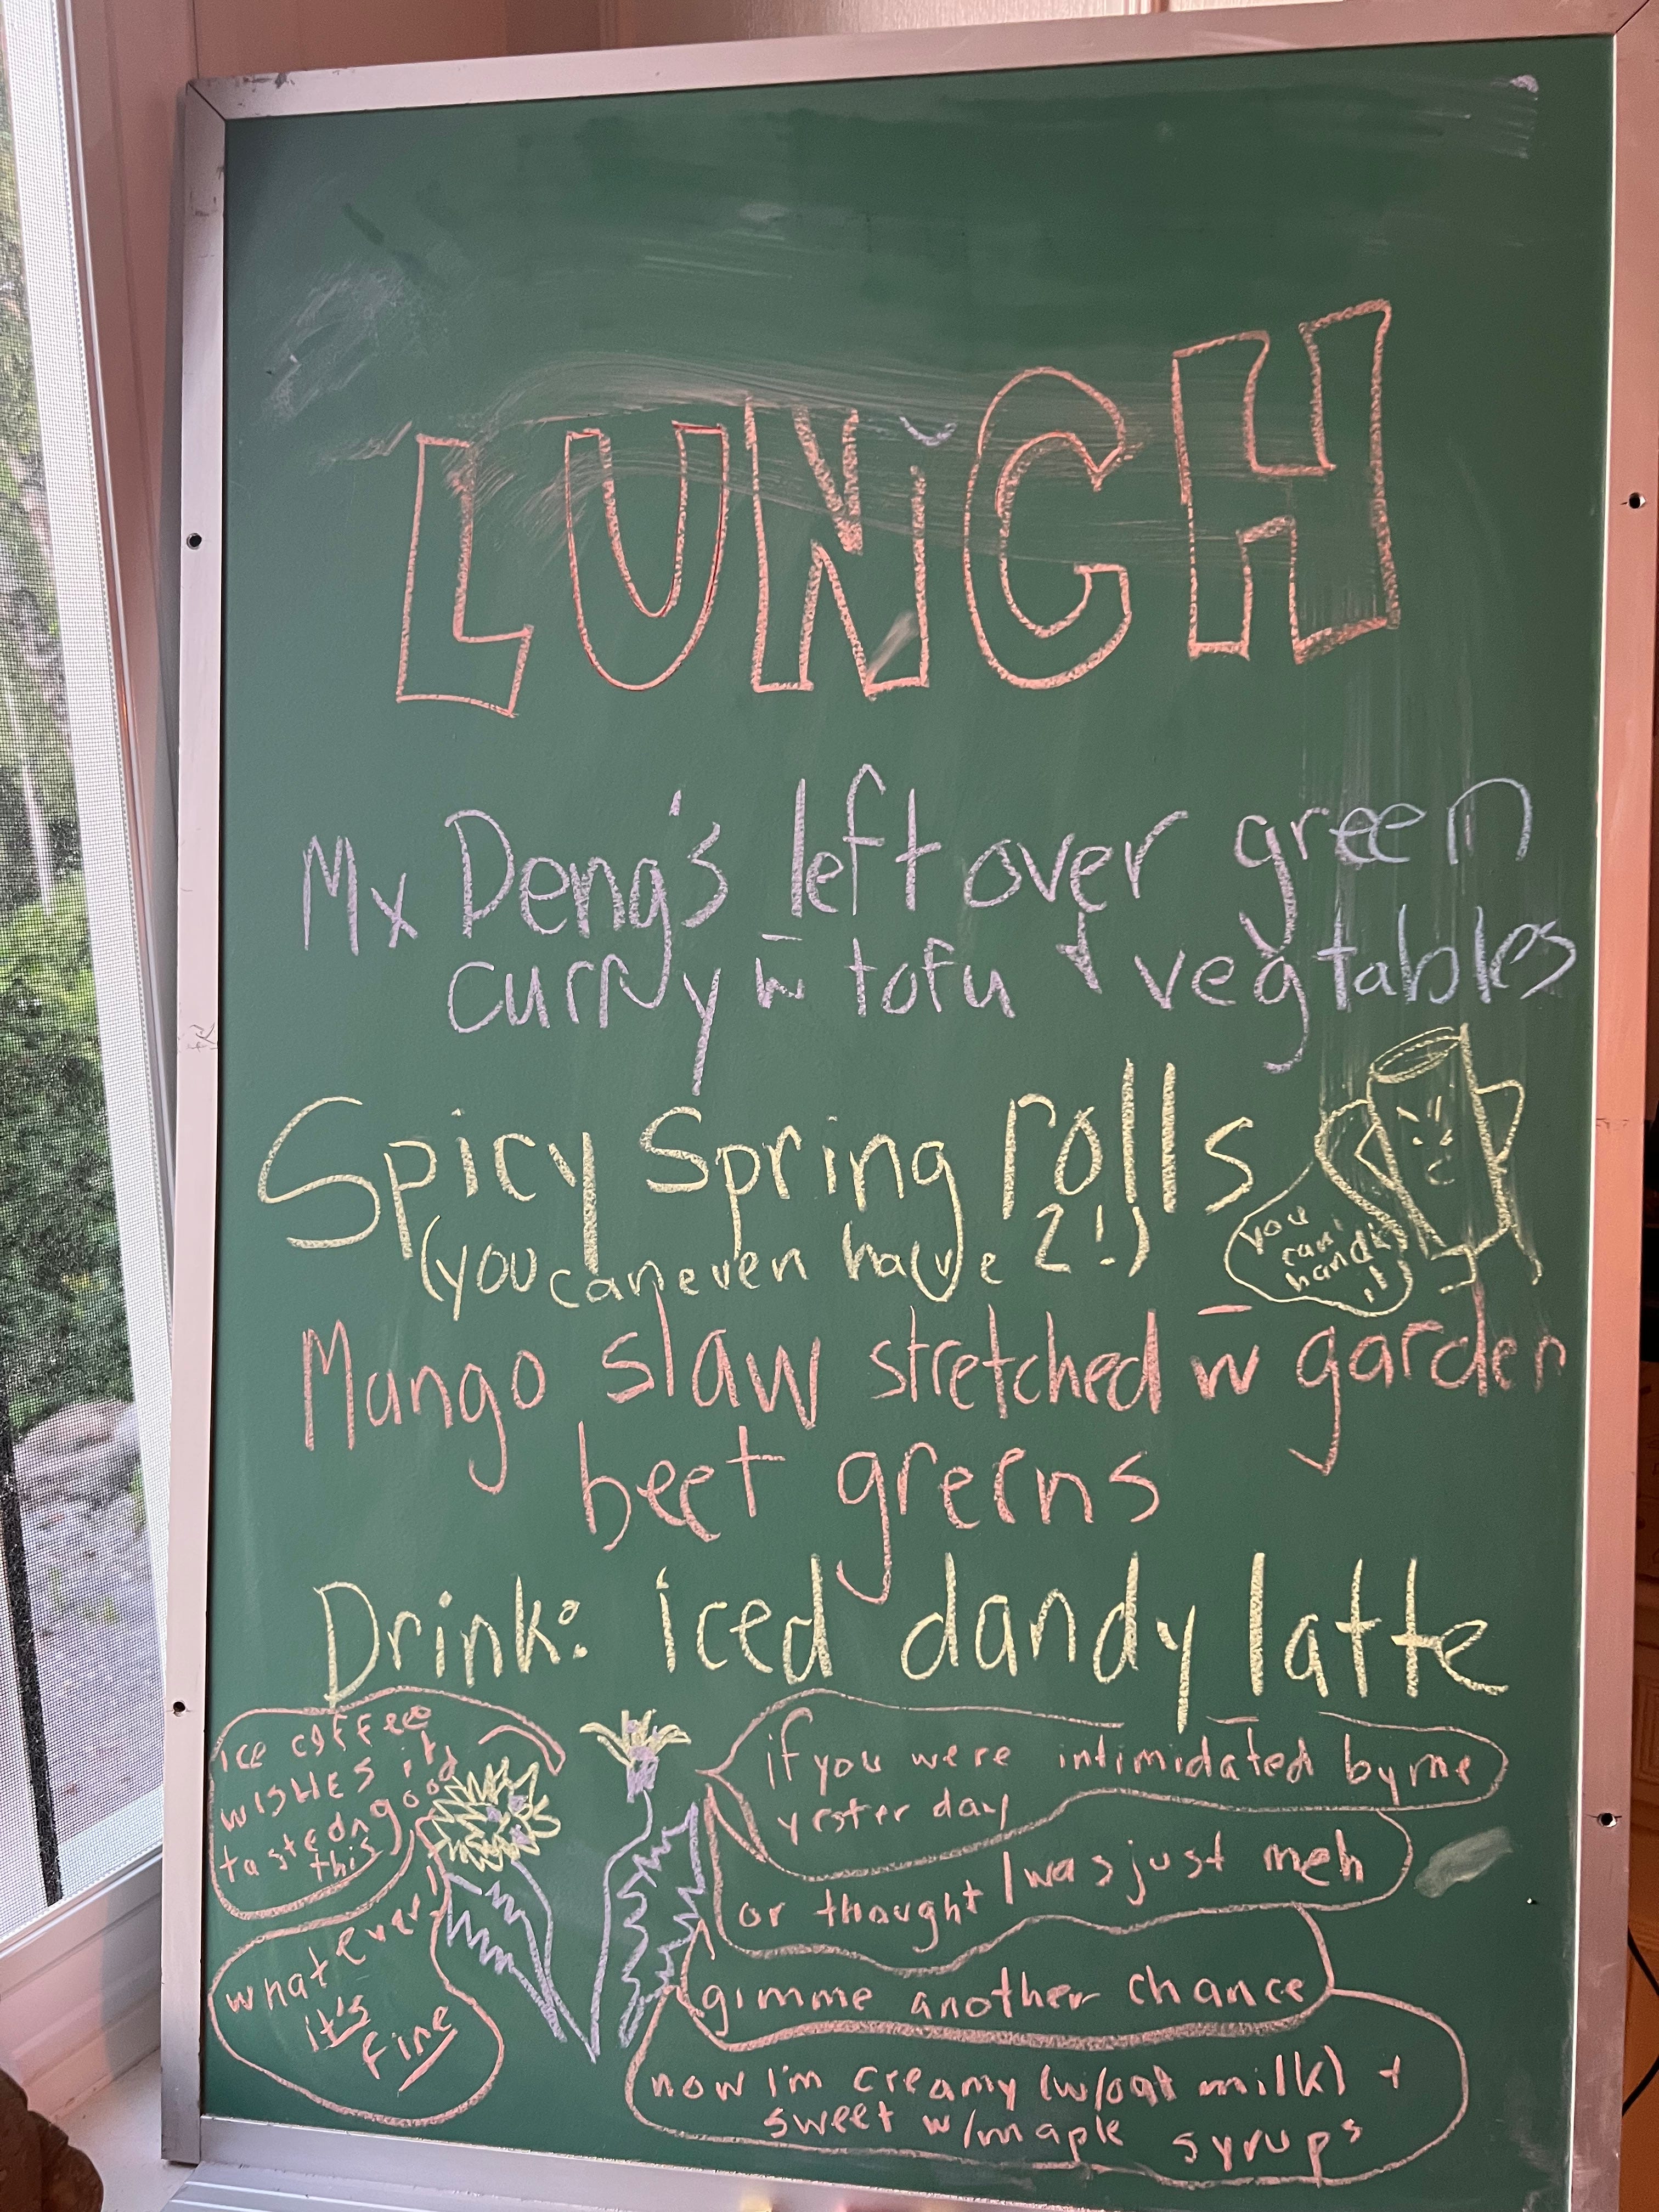 LUNCH
Mx Deng's left over green
curry w̄ tofu + vegtables
Spicy Spring rolls
(you can even have 2!)
you
can't
handle
it!
Mango slaw stretched w̄ garden
beet greens
Drink: iced dandy latte
ice coffee
wishes it
tasted as good
this
whatever!
it's
fine
if you were intimidated by me
yesterday
or thought I was just meh
gimme another chance
now I'm creamy (w/oat milk) +
sweet w/maple syrups